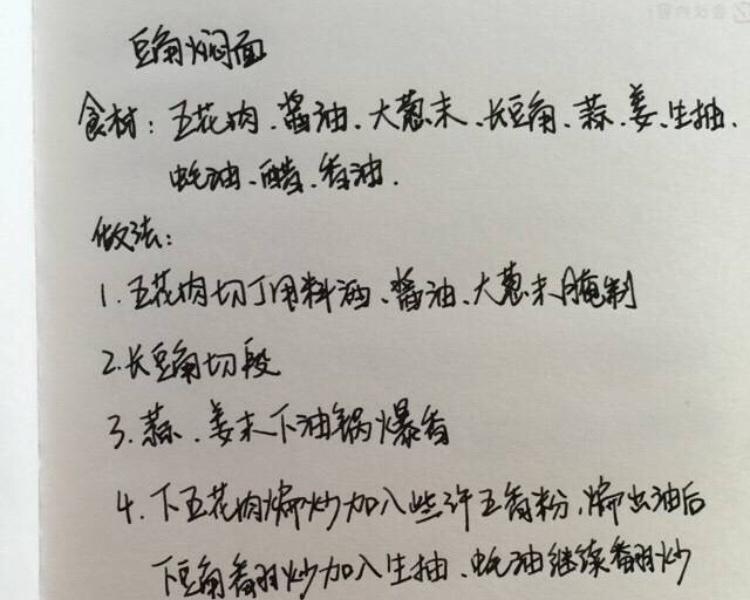 豆角焖面
食材：五花肉、酱油、大葱末、长豆角、蒜、姜、生抽、
蚝油、醋、香油.
做法：
1. 五花肉切丁用料酒、酱油、大葱末腌制
2. 长豆角切段
3. 蒜、姜末下油锅爆香
4. 下五花肉煸炒加入些许五香粉，煸出油后
下豆角翻炒加入生抽、蚝油继续翻炒